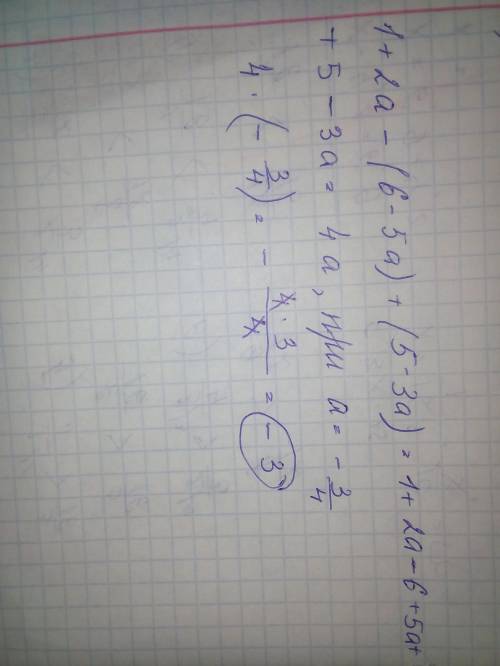 1 + 2a - (6 - 5a) + (5 - 3a) = 1 + 2a - 6 + 5a +
+ 5 - 3a = 4a, при a = - 3/4
4 · (- 3/4) = - (4 · 3)/4 = - 3